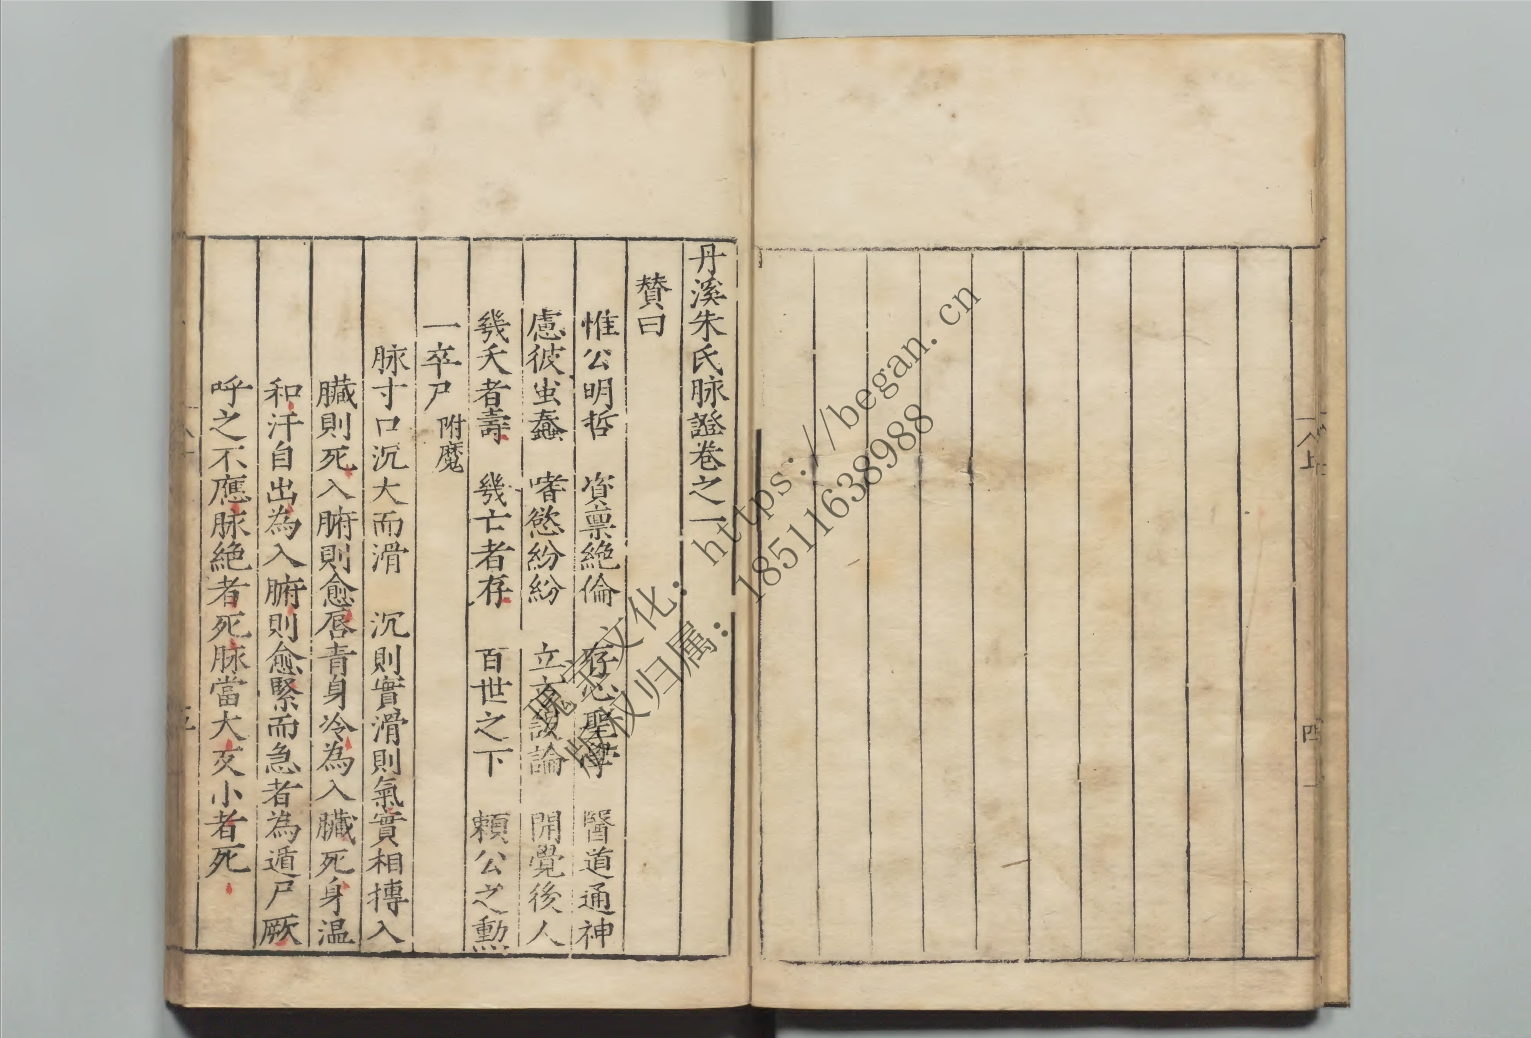 丹溪朱氏脉證卷之一
贊曰
惟公明哲　資禀絶倫　存心聖學　醫道通神
慮彼蚩蠢　嗜慾紛紛　立言設論　開覺後人
幾夭者壽　幾亡者存　百世之下　頼公之勲
一卒尸　附魔
脉寸口沉大而滑　沉則實滑則氣實相摶入
臟則死入腑則愈唇青身冷為入臟死身温
和汗自出為入腑則愈緊而急者為遁尸厥
呼之不應脉絶者死脉當大反小者死
文化：https://began.cn
版权归属：18511638988